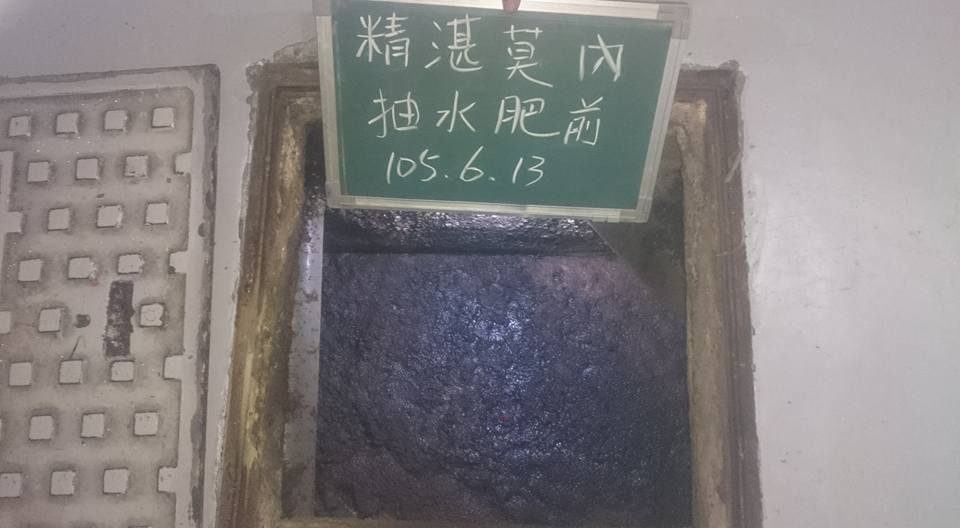 精湛莫內
抽水肥前
105.6.13